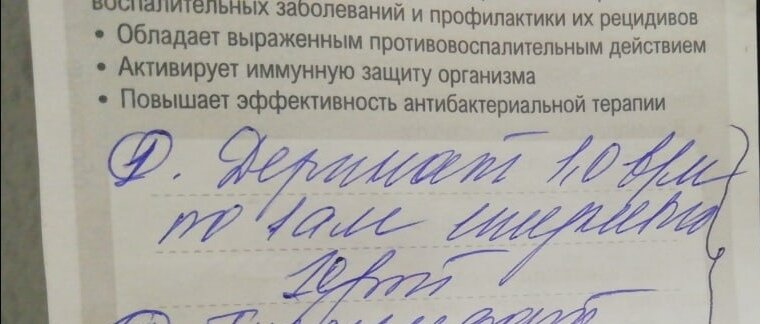 воспалительных заболеваний и профилактики их рецидивов
• Обладает выраженным противовоспалительным действием
• Активирует иммунную защиту организма
• Повышает эффективность антибактериальной терапии
1. Деринат 1,0 в/м
по 1 ам